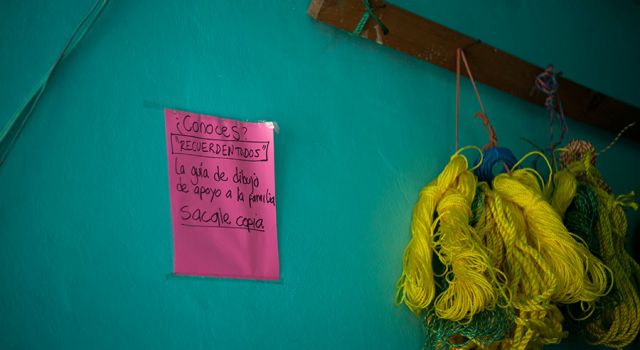 ¿Conoces?
"RECUERDENTODOS"
La guía de dibujo
de apoyo a la familia
Sacale copia